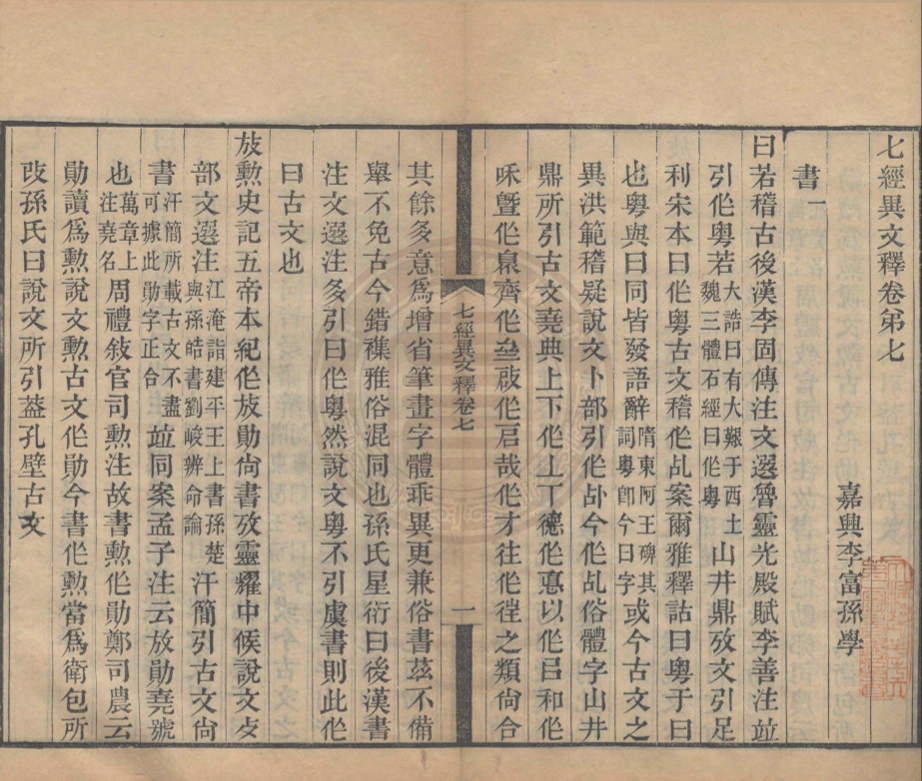 七經異文釋卷弟七
嘉興李富孫學
書一
曰若稽古後漢李固傳注文選魯靈光殿賦李善注竝
引作粵若大誥曰有大艱于西土魏三體石經曰作粵山井鼎攷文引足
利宋本曰作粵古文稽作乩案爾雅釋詁曰粵于曰
也粵與曰同皆發語辭隋東阿王碑其詞粵卽今曰字或今古文之
異洪範稽疑說文卜部引作卟今作乩俗體字山井
鼎所引古文堯典上下作丄丅德作悳以作㠯和作
咊曁作泉齊作亝啟作启哉作才往作徃之類尙合
其餘多意爲增省筆畫字體乖異更兼俗書茲不備
舉不免古今錯襍雅俗混同也孫氏星衍曰後漢書
注文選注多引曰作粵然說文粵不引虞書則此作
曰古文也
放勳史記五帝本紀作放勛尙書攷靈耀中候說文攴
部文選注江淹詣建平王上書孫楚與孫皓書劉峻辨命論汗簡引古文尙
書汗簡所載古文不盡可據此勛字正合竝同案孟子注云放勛堯號
也萬章上注堯名周禮敍官司勳注故書勳作勛鄭司農云
勛讀爲勳說文勳古文作勛今書作勳當爲衛包所
改孫氏曰說文所引葢孔壁古文
七經異文釋卷七
一